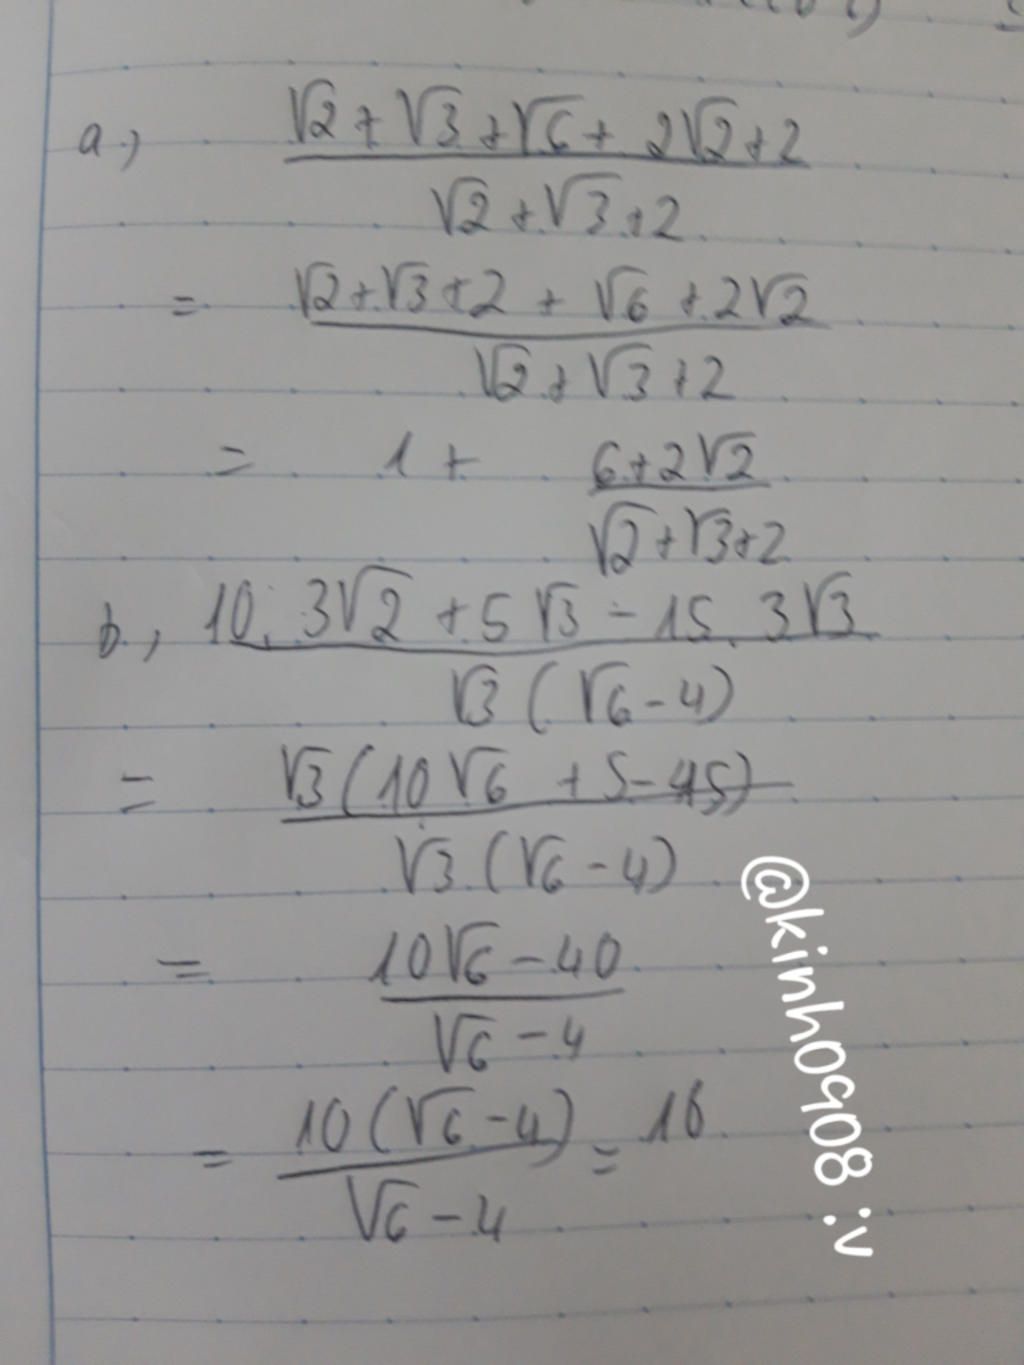 a.,
√2 + √3 + √6 + 2√2 + 2
√2 + √3 + 2
= √2 + √3 + 2 + √6 + 2√2
√2 + √3 + 2
= 1 + 6 + 2√2
√2 + √3 + 2
b., 10. 3√2 + 5√3 - 15. 3√3
√3 (√6 - 4)
= √3 (10√6 + 5 - 45)
√3 (√6 - 4)
= 10√6 - 40
√6 - 4
= 10 (√6 - 4) = 10
√6 - 4
@kinh0908 :v